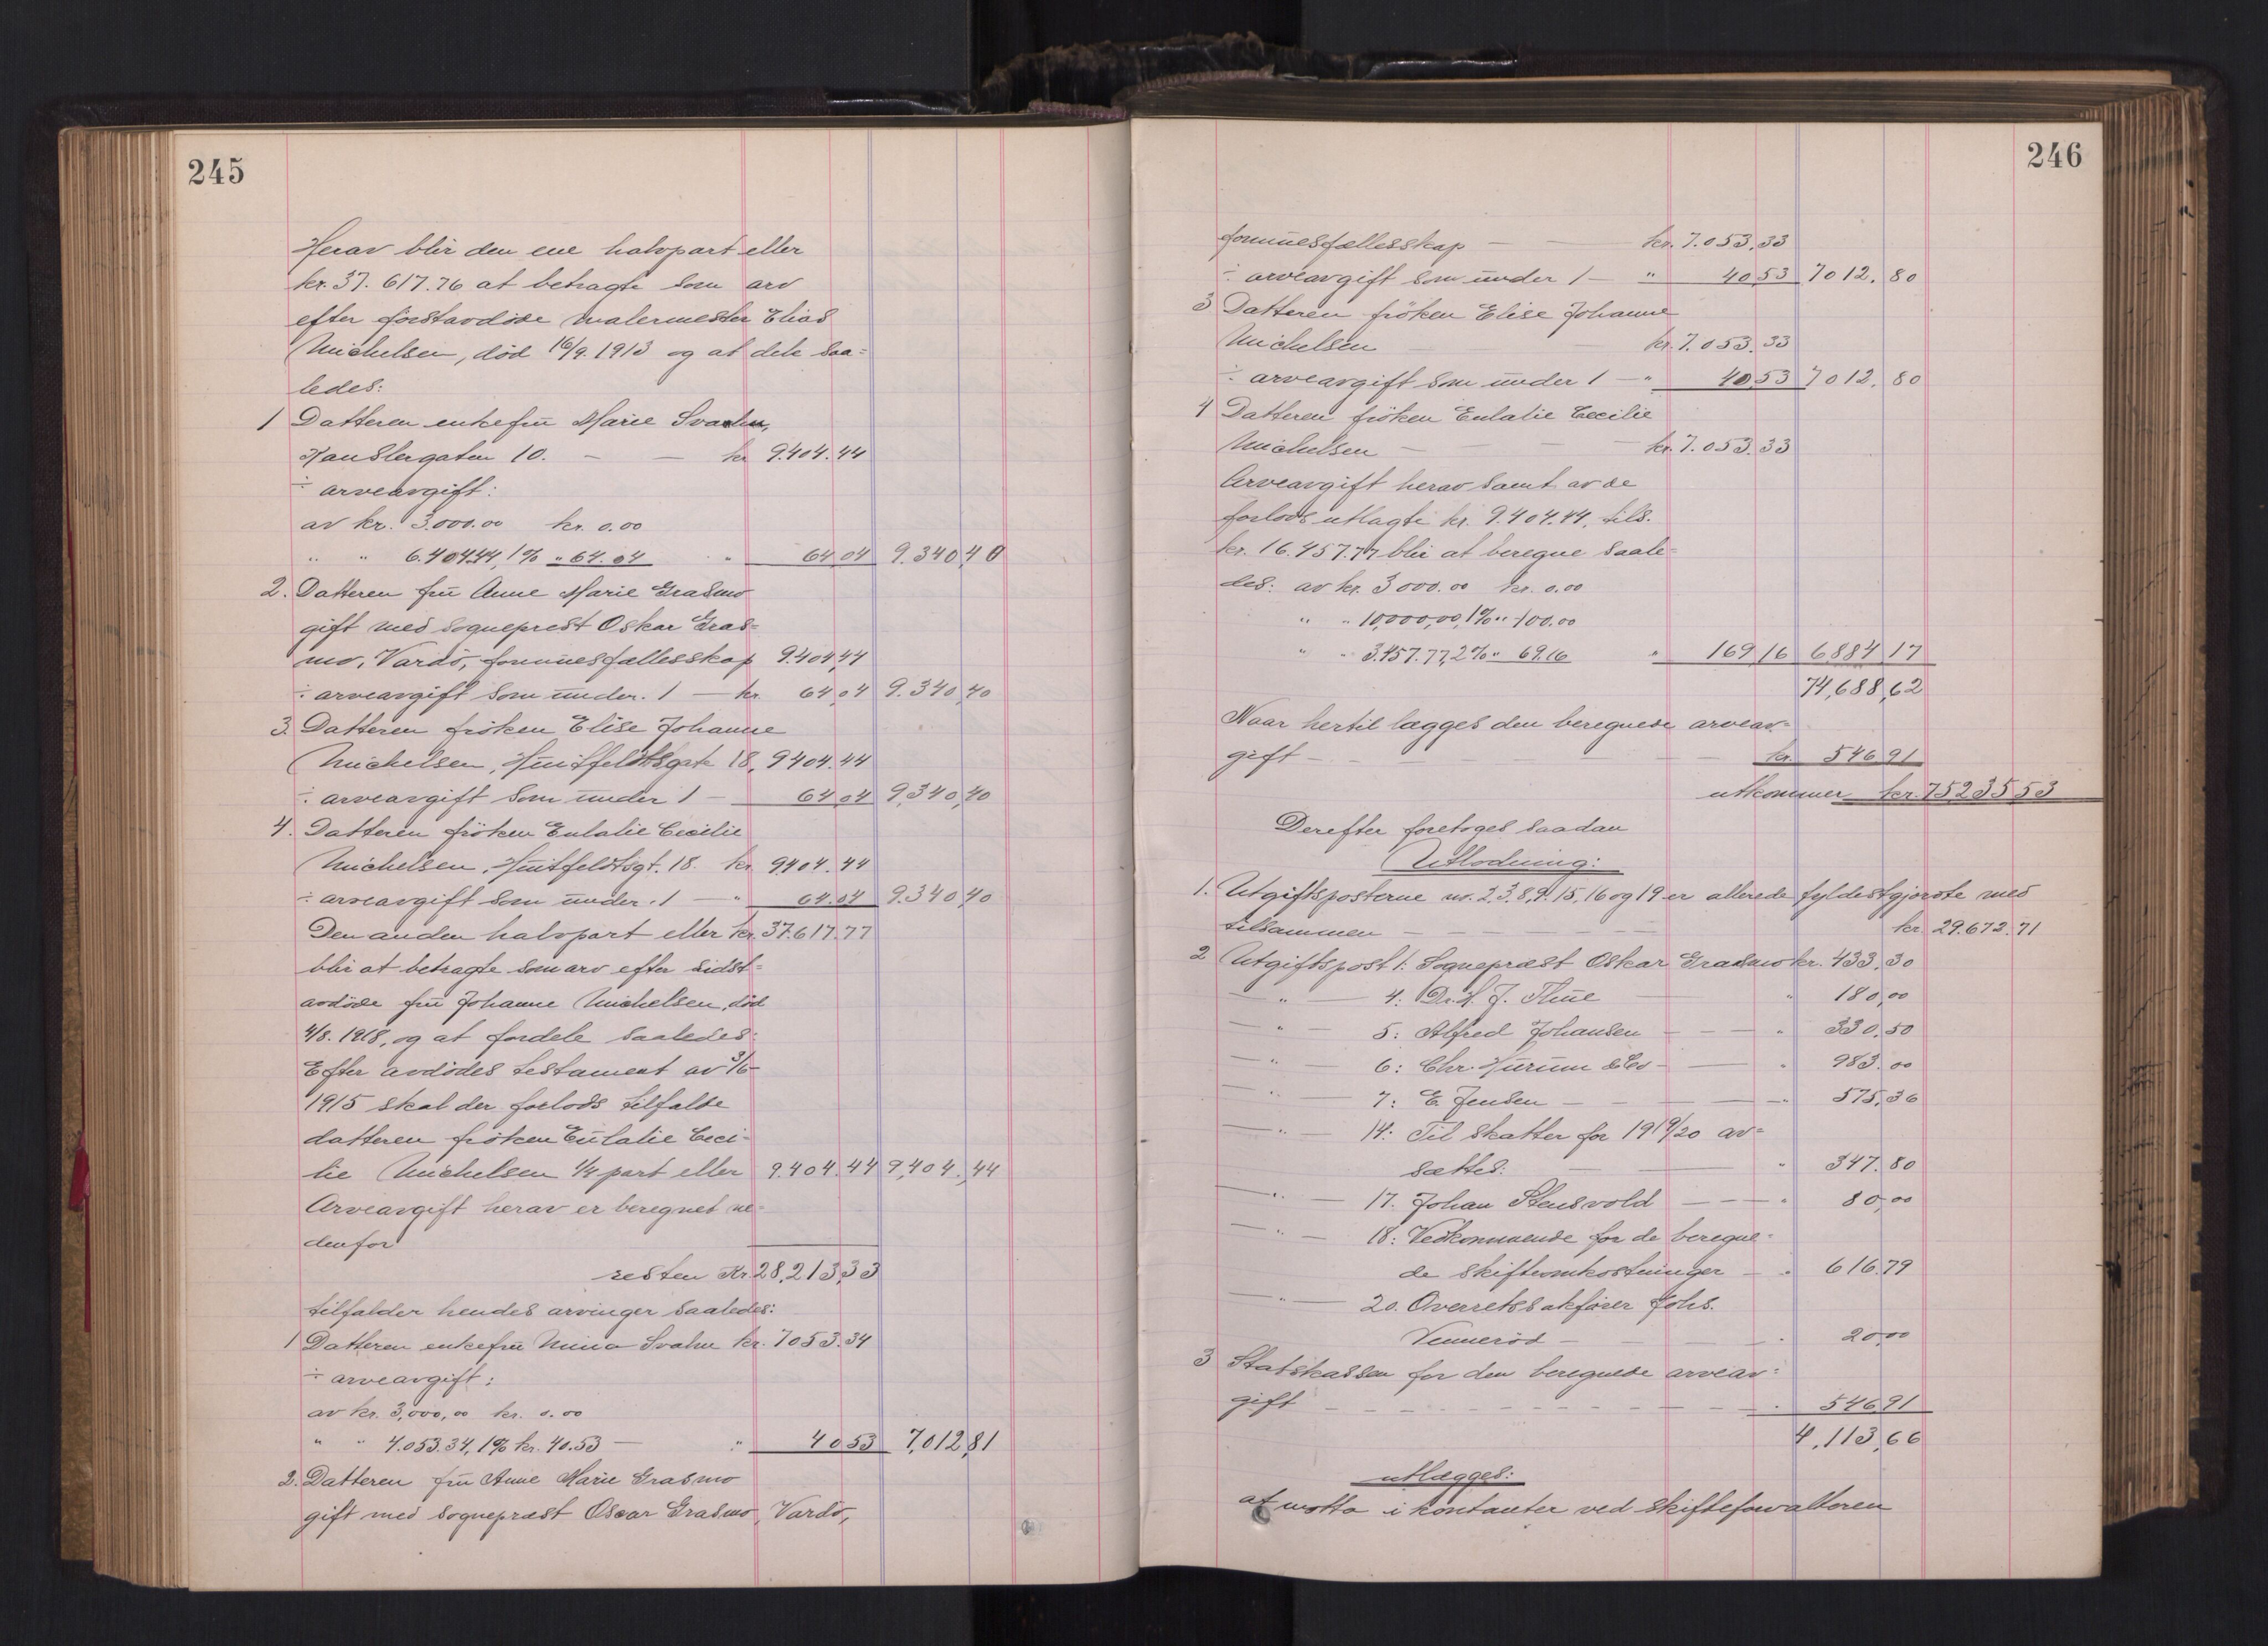 245
Herav blir den ene halvpart eller
kr. 37.617.76 at betragte som arv
efter førstavdøde malermester Elias
Michelsen, død 16/9.1913 og at dele saa=
ledes:
1 Datteren enkefru Marie Svahn,
Hauslergaten 10. - — kr 9.404.44
÷ arveavgift:
av kr. 3.000.00 kr. 0.00
" " 6.404.44, 1% " 64.04 " 64,04 9.340,40
2. Datteren fru Anne Marie Grasmo
gift med sogneprest Oskar Gras=
mo, Vardö, formuesfællesskap 9.404,44
÷ arveavgift som under 1 — kr. 64,04 9.340,40
3. Datteren fröken Elise Johanne
Michelsen, Huitfeldtsgate 18, 9404.44
÷ arveavgift som under 1 — 64,04 9,340,40
4. Datteren fröken Eulalie Cecilie
Michelsen, Huitfeldtsgt. 18. kr. 9404.44
÷ arveavgift som under 1 — " 64.04 9.340,40
Den anden halvpart eller kr. 37.617.77
blir at betragte som arv efter sidst=
avdøde fru Johanne Michelsen, død
4/8.1918, og at fordele saaledes:
Efter avdødes testament av 3/6
1915 skal der forlods tilfalde
datteren fröken Eulalie Ceci=
lie Michelsen 1/4 part eller 9.404.44 9,404,44
Arveavgift herav er beregnet ne=
denfor
resten Kr. 28,213,33
tilfalder hendes arvinger saaledes:
1 Datteren enkefru Mina Svahn kr. 7053.34
÷ arveavgift:
av kr. 3,000,00 kr. 0.00
" " 4.053.34, 1% kr. 40.53 — " 4053 7,012,81
2. Datteren fru Anne Marie Grasmo
gift med sogneprest Oscar Grasmo, Vardö,
246
formuesfællesskap — — kr. 7.053,33
÷ arveavgift som under 1 — " 40,53 7012,80
3 Datteren fröken Elise Johanne
Michelsen — kr. 7.053.33
÷ arveavgift som under 1 — " 40,53 7012,80
4 Datteren fröken Eulalie Cecilie
Michelsen — — — kr. 7.053.33
Arveavgift herav samt av de
forlods utlagte kr. 9.404.44, tils.
kr. 16.457.77 blir at beregne saale=
des: av kr. 3000.00 kr. 0.00
" " 10,000,00, 1% " 100.00
" " 3.457.77, 2% " 69.16 " 169,16 6884,17
74,688,62
Naar hertil lægges den beregnede arveav=
gift — — kr. 546,91
utkommer kr. 75235,53
Derefter foretoges saadan
Utlodning:
1. Utgiftsposterne nr. 2,3,8,9.15,16 og 19 er allerede fyldestgjorte med
tilsammen — — — — kr. 29.672.71
2 Utgiftspost 1: Sogneprest Oskar Grasmo kr. 433,30
— " — 4: Dr. H. J. Thue — " 180,00
— " — 5: Alfred Johansen — — — " 330,50
— " — 6: Chr. Hurum & Co — — " 983.00
— " — 7: E. Jensen — — — — " 575,36
— " — 14: Til skatter for 1919/20 av=
sættes: — — " 347.80
— " — 17. Johan Stensvold — — — " 80,00
— " — 18: Vedkommende for de beregne=
de skifteomkostninger — " 616.79
— " — 20. Overretssakfører Johs.
Vennerød — — — " 20,00
3 Statskassen for den beregnede arveav=
gift — — — — — — " 546,91
4,113,66
utlægges:
at motta i kontanter ved skifteforvalteren